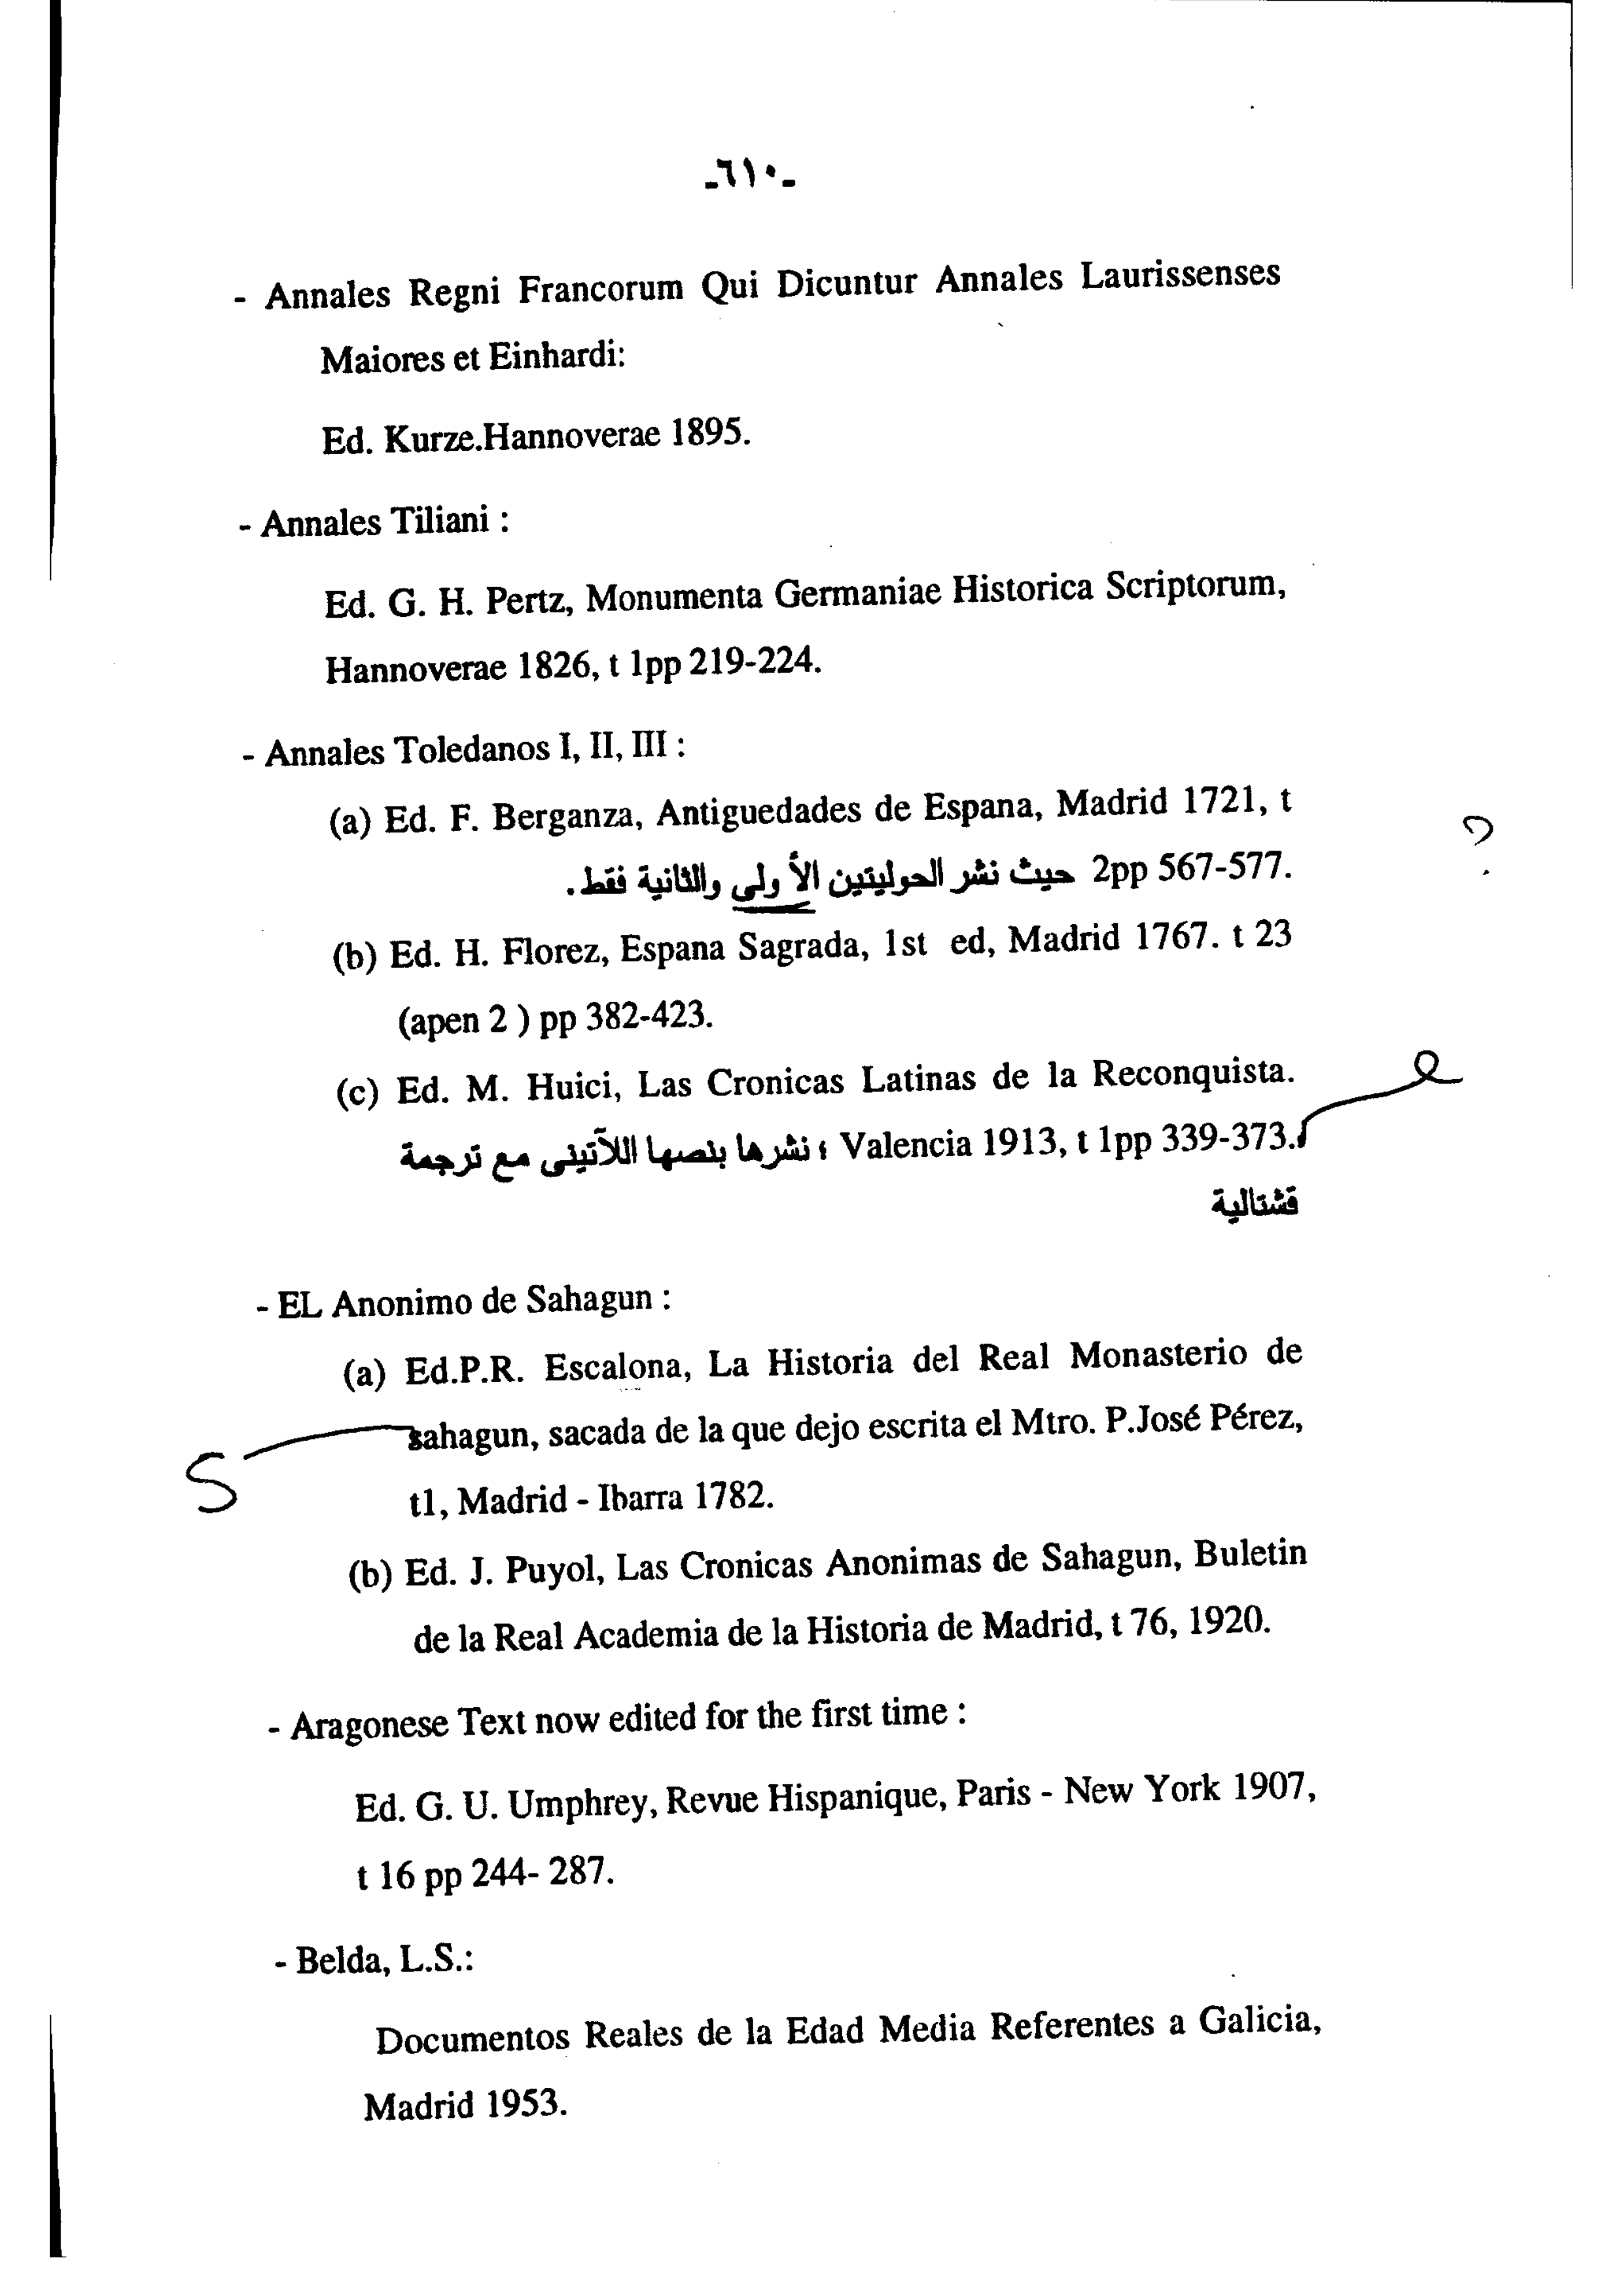 -٦١٠-
- Annales Regni Francorum Qui Dicuntur Annales Laurissenses
Maiores et Einhardi:
Ed. Kurze.Hannoverae 1895.
- Annales Tiliani :
Ed. G. H. Pertz, Monumenta Germaniae Historica Scriptorum,
Hannoverae 1826, t 1pp 219-224.
- Annales Toledanos I, II, III :
(a) Ed. F. Berganza, Antiguedades de Espana, Madrid 1721, t
2pp 567-577. حيث نشر الحوليتين الأولى والثانية فقط .
?
(b) Ed. H. Florez, Espana Sagrada, 1st ed, Madrid 1767. t 23
(apen 2 ) pp 382-423.
(c) Ed. M. Huici, Las Cronicas Latinas de la Reconquista.
Valencia 1913, t 1pp 339-373. ؛ نشرها بنصها اللآتينى مع ترجمة
قشتالية
- EL Anonimo de Sahagun :
(a) Ed.P.R. Escalona, La Historia del Real Monasterio de
sahagun, sacada de la que dejo escrita el Mtro. P.José Pérez,
S
t1, Madrid - Ibarra 1782.
(b) Ed. J. Puyol, Las Cronicas Anonimas de Sahagun, Buletin
de la Real Academia de la Historia de Madrid, t 76, 1920.
- Aragonese Text now edited for the first time :
Ed. G. U. Umphrey, Revue Hispanique, Paris - New York 1907,
t 16 pp 244- 287.
- Belda, L.S.:
Documentos Reales de la Edad Media Referentes a Galicia,
Madrid 1953.